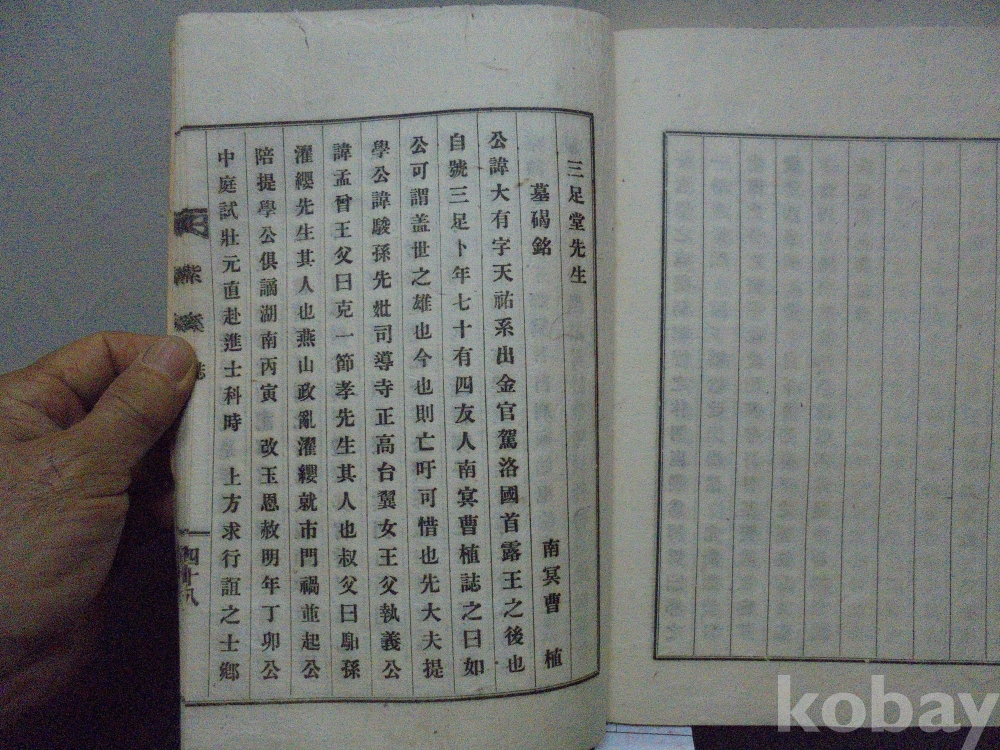 三足堂先生
墓碣銘
南冥曹 植
公諱大有字天祐系出金官駕洛國首露王之後也
自號三足卜年七十有四友人南冥曹植誌之曰如
公可謂盖世之雄也今也則亡吁可惜也先大夫提
學公諱駿孫先妣司導寺正高台翼女王父執義公
諱孟曾王父曰克一節孝先生其人也叔父曰馹孫
濯纓先生其人也燕山政亂濯纓就市門禍並起公
陪提學公俱謫湖南丙寅 改玉恩赦明年丁卯公
中庭試壯元直赴進士科時 上方求行誼之士鄉
誌
四十八
kobay